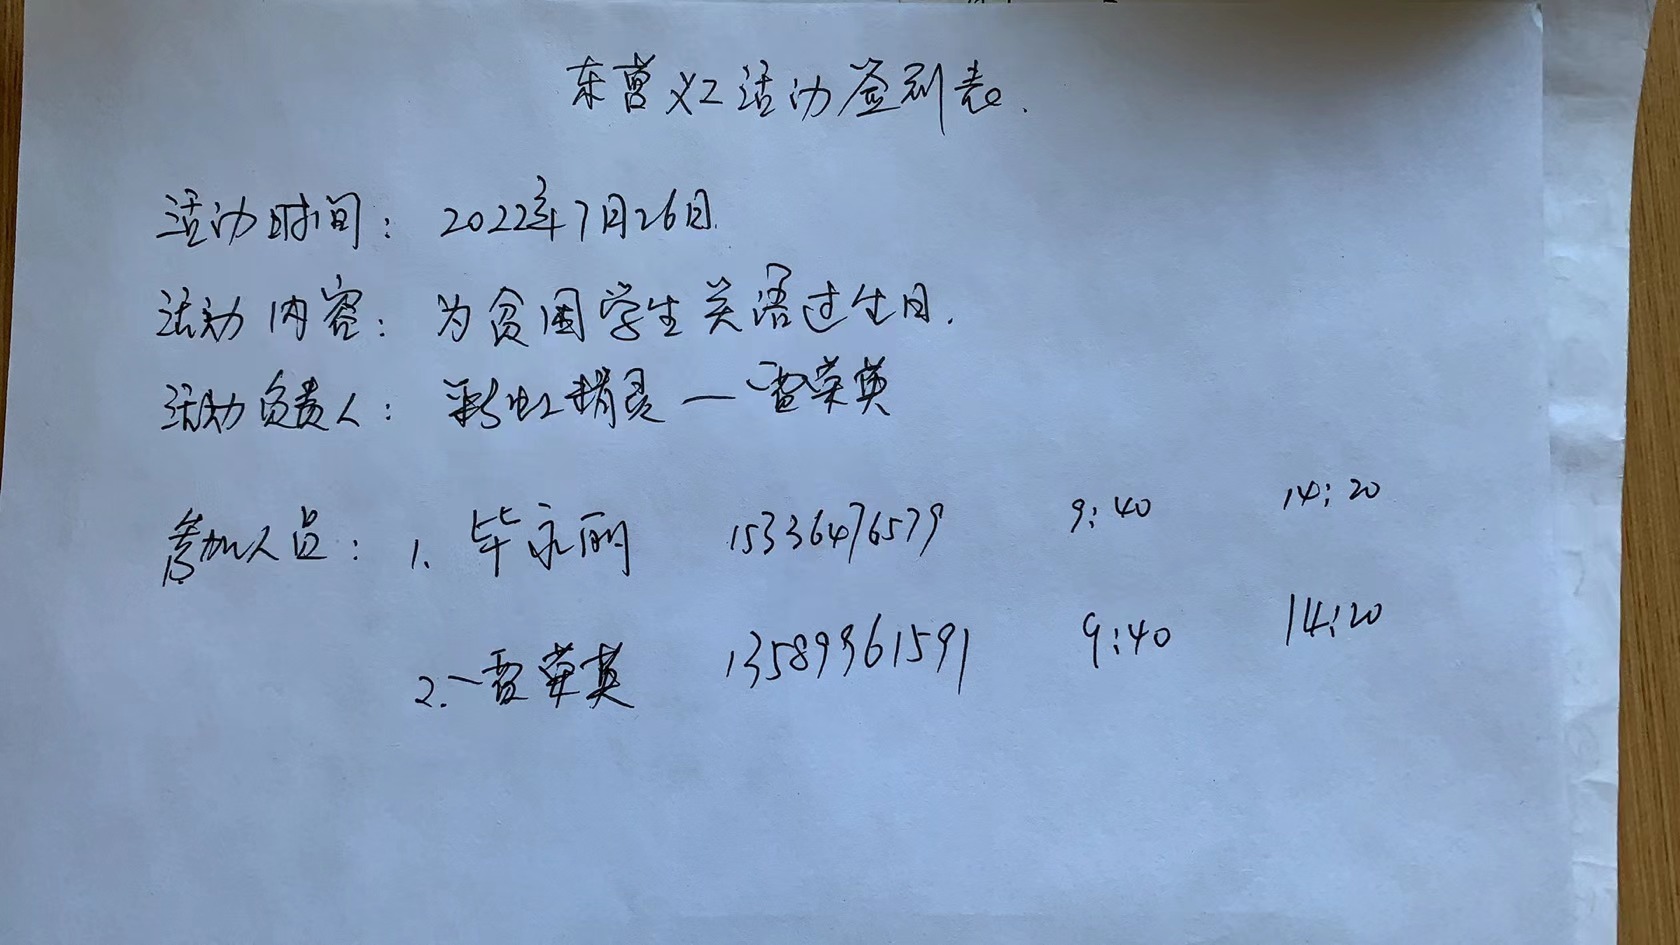 东营义工活动签到表.
活动时间: 2022年7月26日.
活动内容: 为贫困学生关语过生日.
活动负责人: 彩虹精灵—雷荣英
参加人员: 1. 毕永丽 15336476579 9:40 14:20
2. 雷荣英 13589961591 9:40 14:20